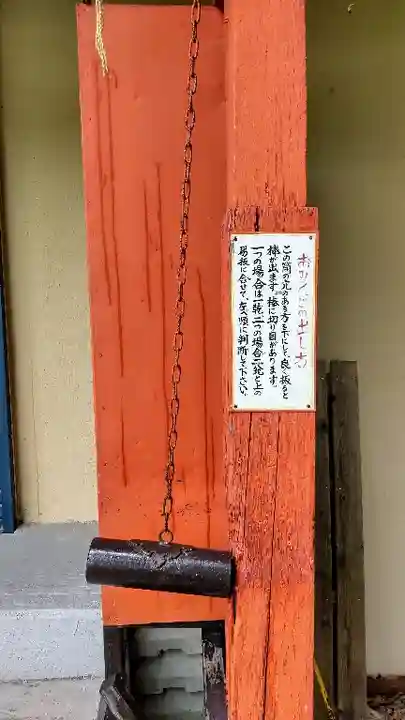 おみくじの出し方
この筒の穴のある方を下にして、良く振ると
棒が出ます。棒に切り目があります。
一つの場合は一乾、二つの場合二兌と上の
易板に合せて、左へ順に判断して下さい。